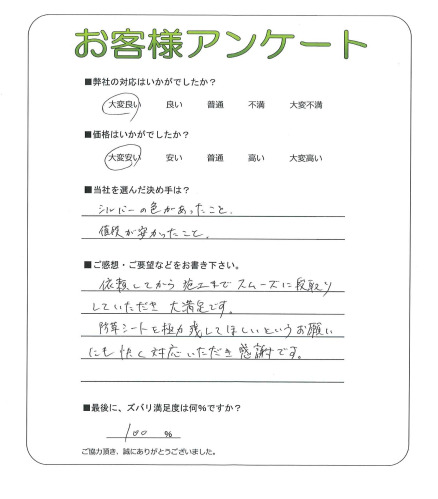 お客様アンケート
■弊社の対応はいかがでしたか?
大変良い 良い 普通 不満 大変不満
■価格はいかがでしたか?
大変安い 安い 普通 高い 大変高い
■当社を選んだ決め手は?
シルバーの色があったこと。
値段が安かったこと。
■ご感想・ご要望などをお書き下さい。
依頼してから施工までスムーズに段取り
していただき大満足です。
防草シートを極力残してほしいというお願い
にも快く対応いただき感謝です。
■最後に、ズバリ満足度は何%ですか?
100 %
ご協力頂き、誠にありがとうございました。